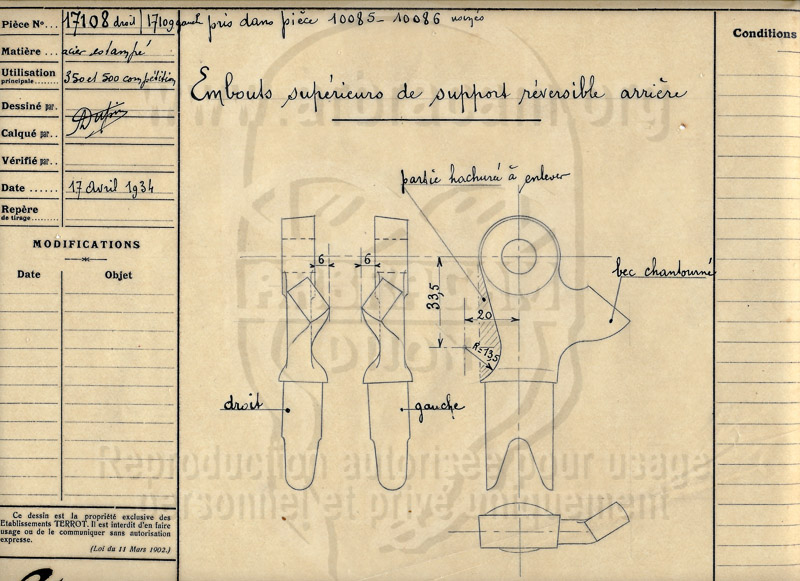 Pièce N°... 17108 droit / 17109 gauch pris dans pièce 10085 - 10086
Matière ... acier estampé
Utilisation
principale ........ 350 et 500 compétition
Dessiné par.
Calqué par..
Vérifié par..
Date ...... 17 avril 1934
Repère
de tirage ........
MODIFICATIONS
Date Objet
Ce dessin est la propriété exclusive des
Etablissements TERROT. Il est interdit d'en faire
usage ou de le communiquer sans autorisation
expresse.
(Loi du 11 Mars 1902.)
Conditions
Embouts supérieurs de support réversible arrière
partie hachuré à enlever
bec chantourné
6
6
33,5
20
R=13,5
droit
gauche
Reproduction autorisée pour usage
personnel et privé uniquement